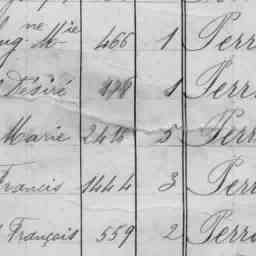 ug ne Mie 466 1 Perr
Désiré 176 1 Perr
Marie 244 5 Perr
Francis 1444 3 Perr
François 559 2 Perr